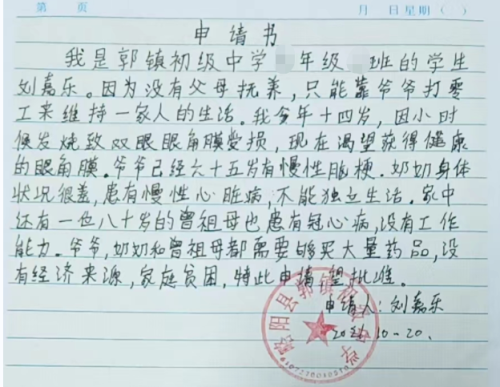 第 页 月 日 星期( )
申请书
我是郭镇初级中学 年级 班的学生
刘嘉乐。因为没有父母抚养,只能靠爷爷打零
工来维持一家人的生活。我今年十四岁,因小时
候发烧致双眼眼角膜受损,现在渴望获得健康
的眼角膜。爷爷已经六十五岁有慢性脑梗.奶奶身体
状况很差,患有慢性心脏病,不能独立生活.家中
还有一位八十岁的曾祖母也患有冠心病,没有工作
能力。爷爷,奶奶和曾祖母都需要够买大量药品,没
有经济来源,家庭贫困,特此申请望批准。
申请人:刘嘉乐
10-20.
阳县郭镇初级中学